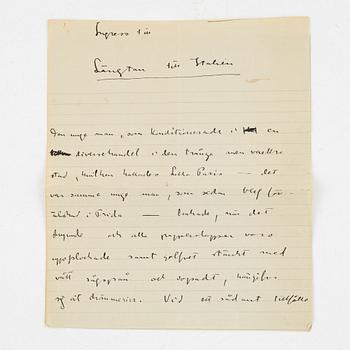 Ingress till
Längtan till Italien
Den unge man, som konditionerade i en
diversehandel i den trånga men
stad, hvilken kallades Lilla Paris — det
var samme unge man, som sedan blef för-
älskad i Frida — brukade, när det
och alla papperslappar voro
uppplockade samt golfvet strödt med
vått sågspån och sopadt, hängifva
sig åt drömmerier. Vid ett sådant tillfälle